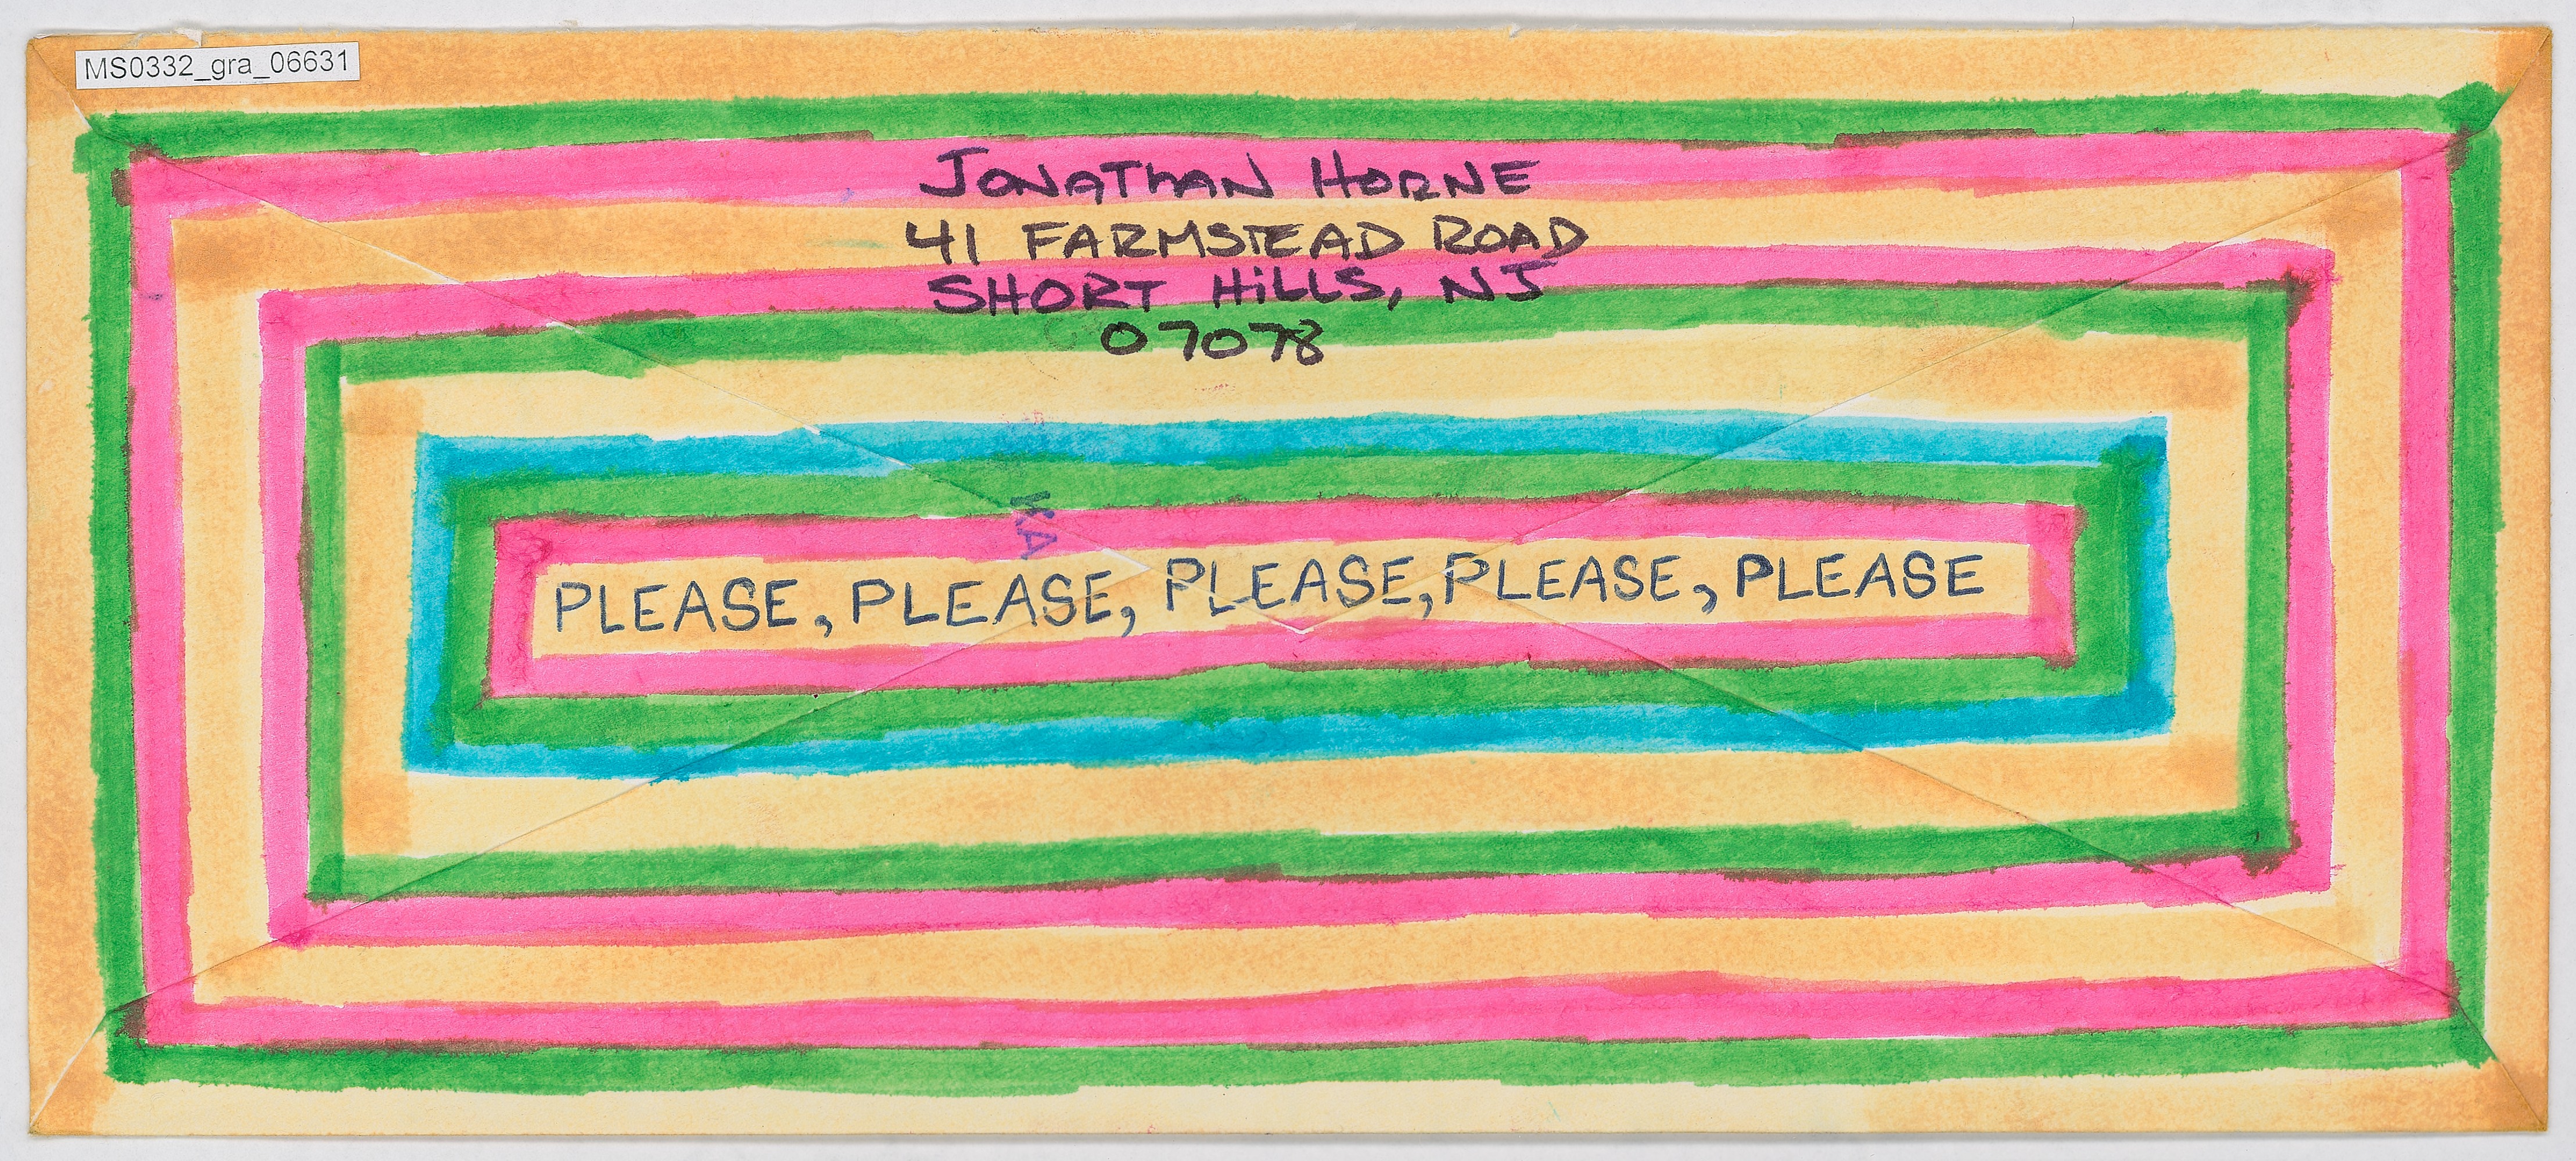 MS0332_gra_06631
JONATHAN HORNE
41 FARMSTEAD ROAD
SHORT HiLLS, NJ
07078
KA
PLEASE, PLEASE, PLEASE, PLEASE, PLEASE